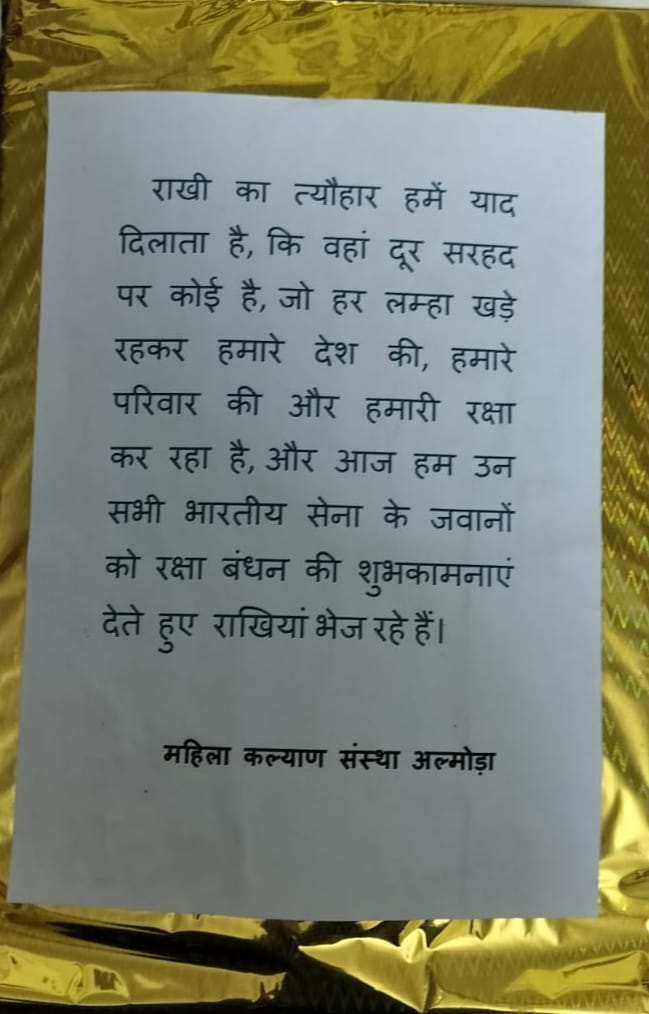 राखी का त्यौहार हमें याद
दिलाता है, कि वहां दूर सरहद
पर कोई है, जो हर लम्हा खड़े
रहकर हमारे देश की, हमारे
परिवार की और हमारी रक्षा
कर रहा है, और आज हम उन
सभी भारतीय सेना के जवानों
को रक्षा बंधन की शुभकामनाएं
देते हुए राखियां भेज रहे हैं।
महिला कल्याण संस्था अल्मोड़ा